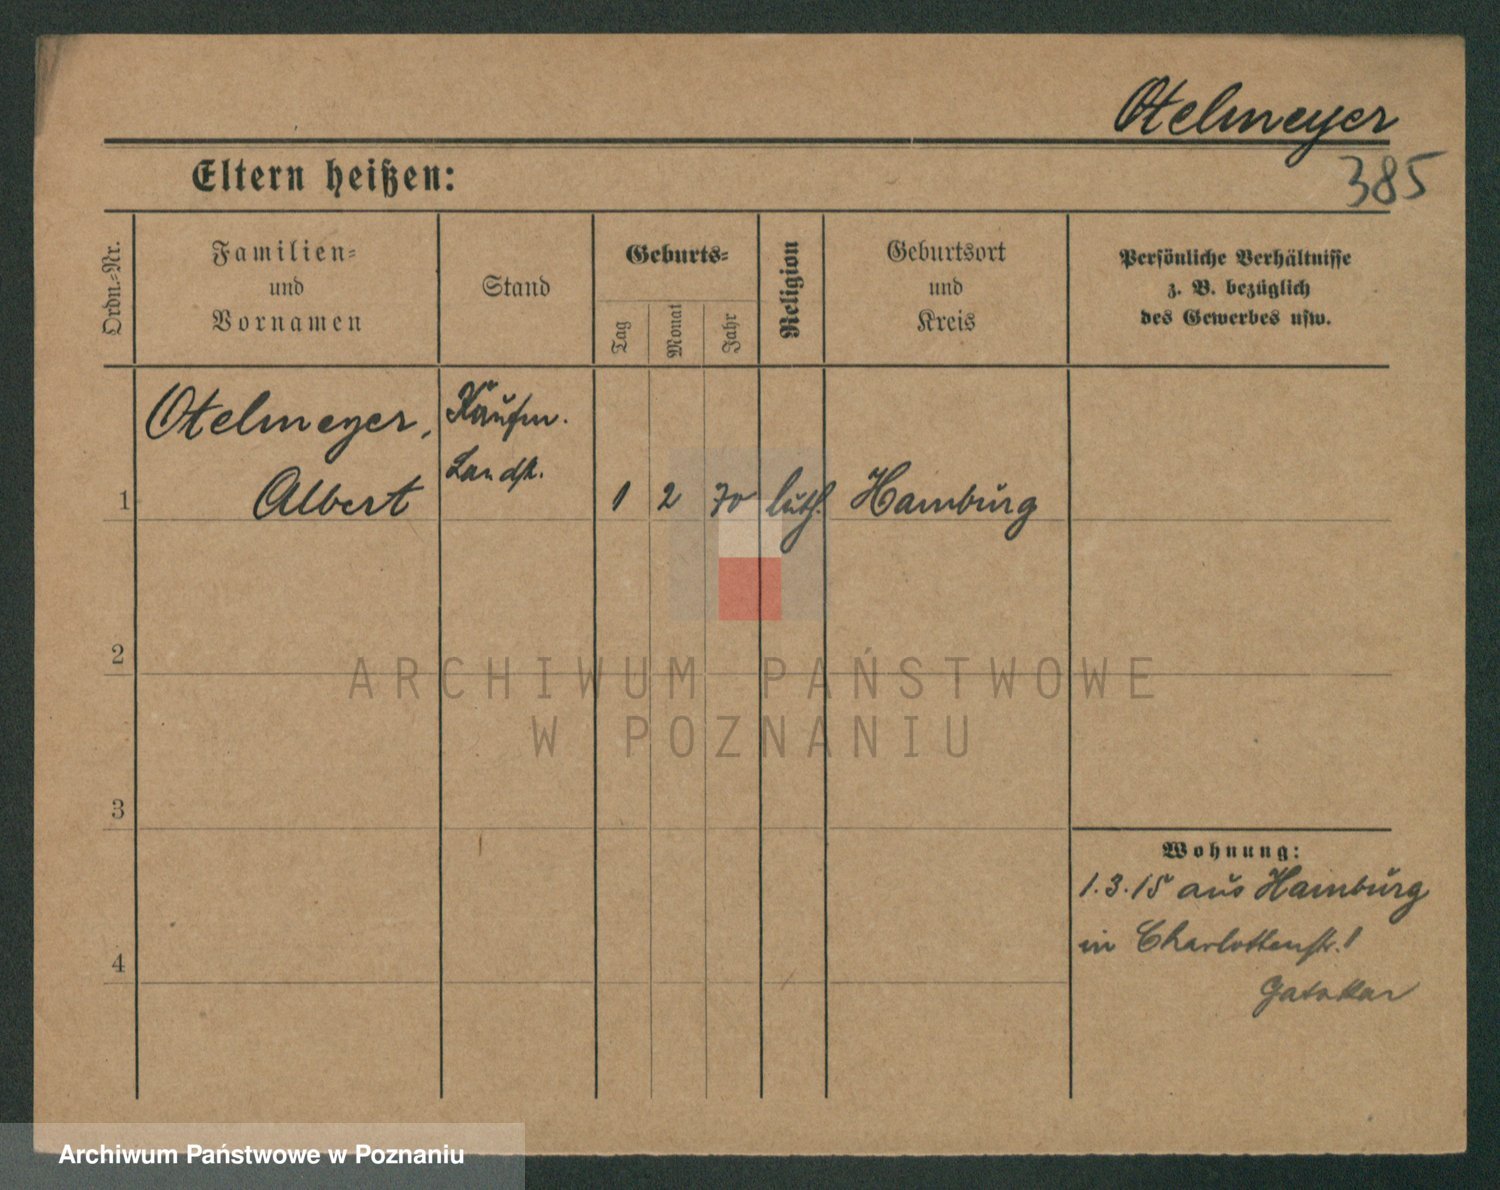 Otelmeyer
385
Eltern heißen:
Ordn.-Nr.
Familien-
und
Vornamen
Stand
Geburts-
Tag
Monat
Jahr
Religion
Geburtsort
und
Kreis
Persönliche Verhältnisse
z. B. bezüglich
des Gewerbes usw.
Otelmeyer,
Albert
Kaufm.
1
1
2
70
luth.
Hamburg
2
ARCHIWUM PAŃSTWOWE
W POZNANIU
3
Wohnung:
1.3.15 aus Hamburg
in Charlottenstr. 1
4
Archiwum Państwowe w Poznaniu